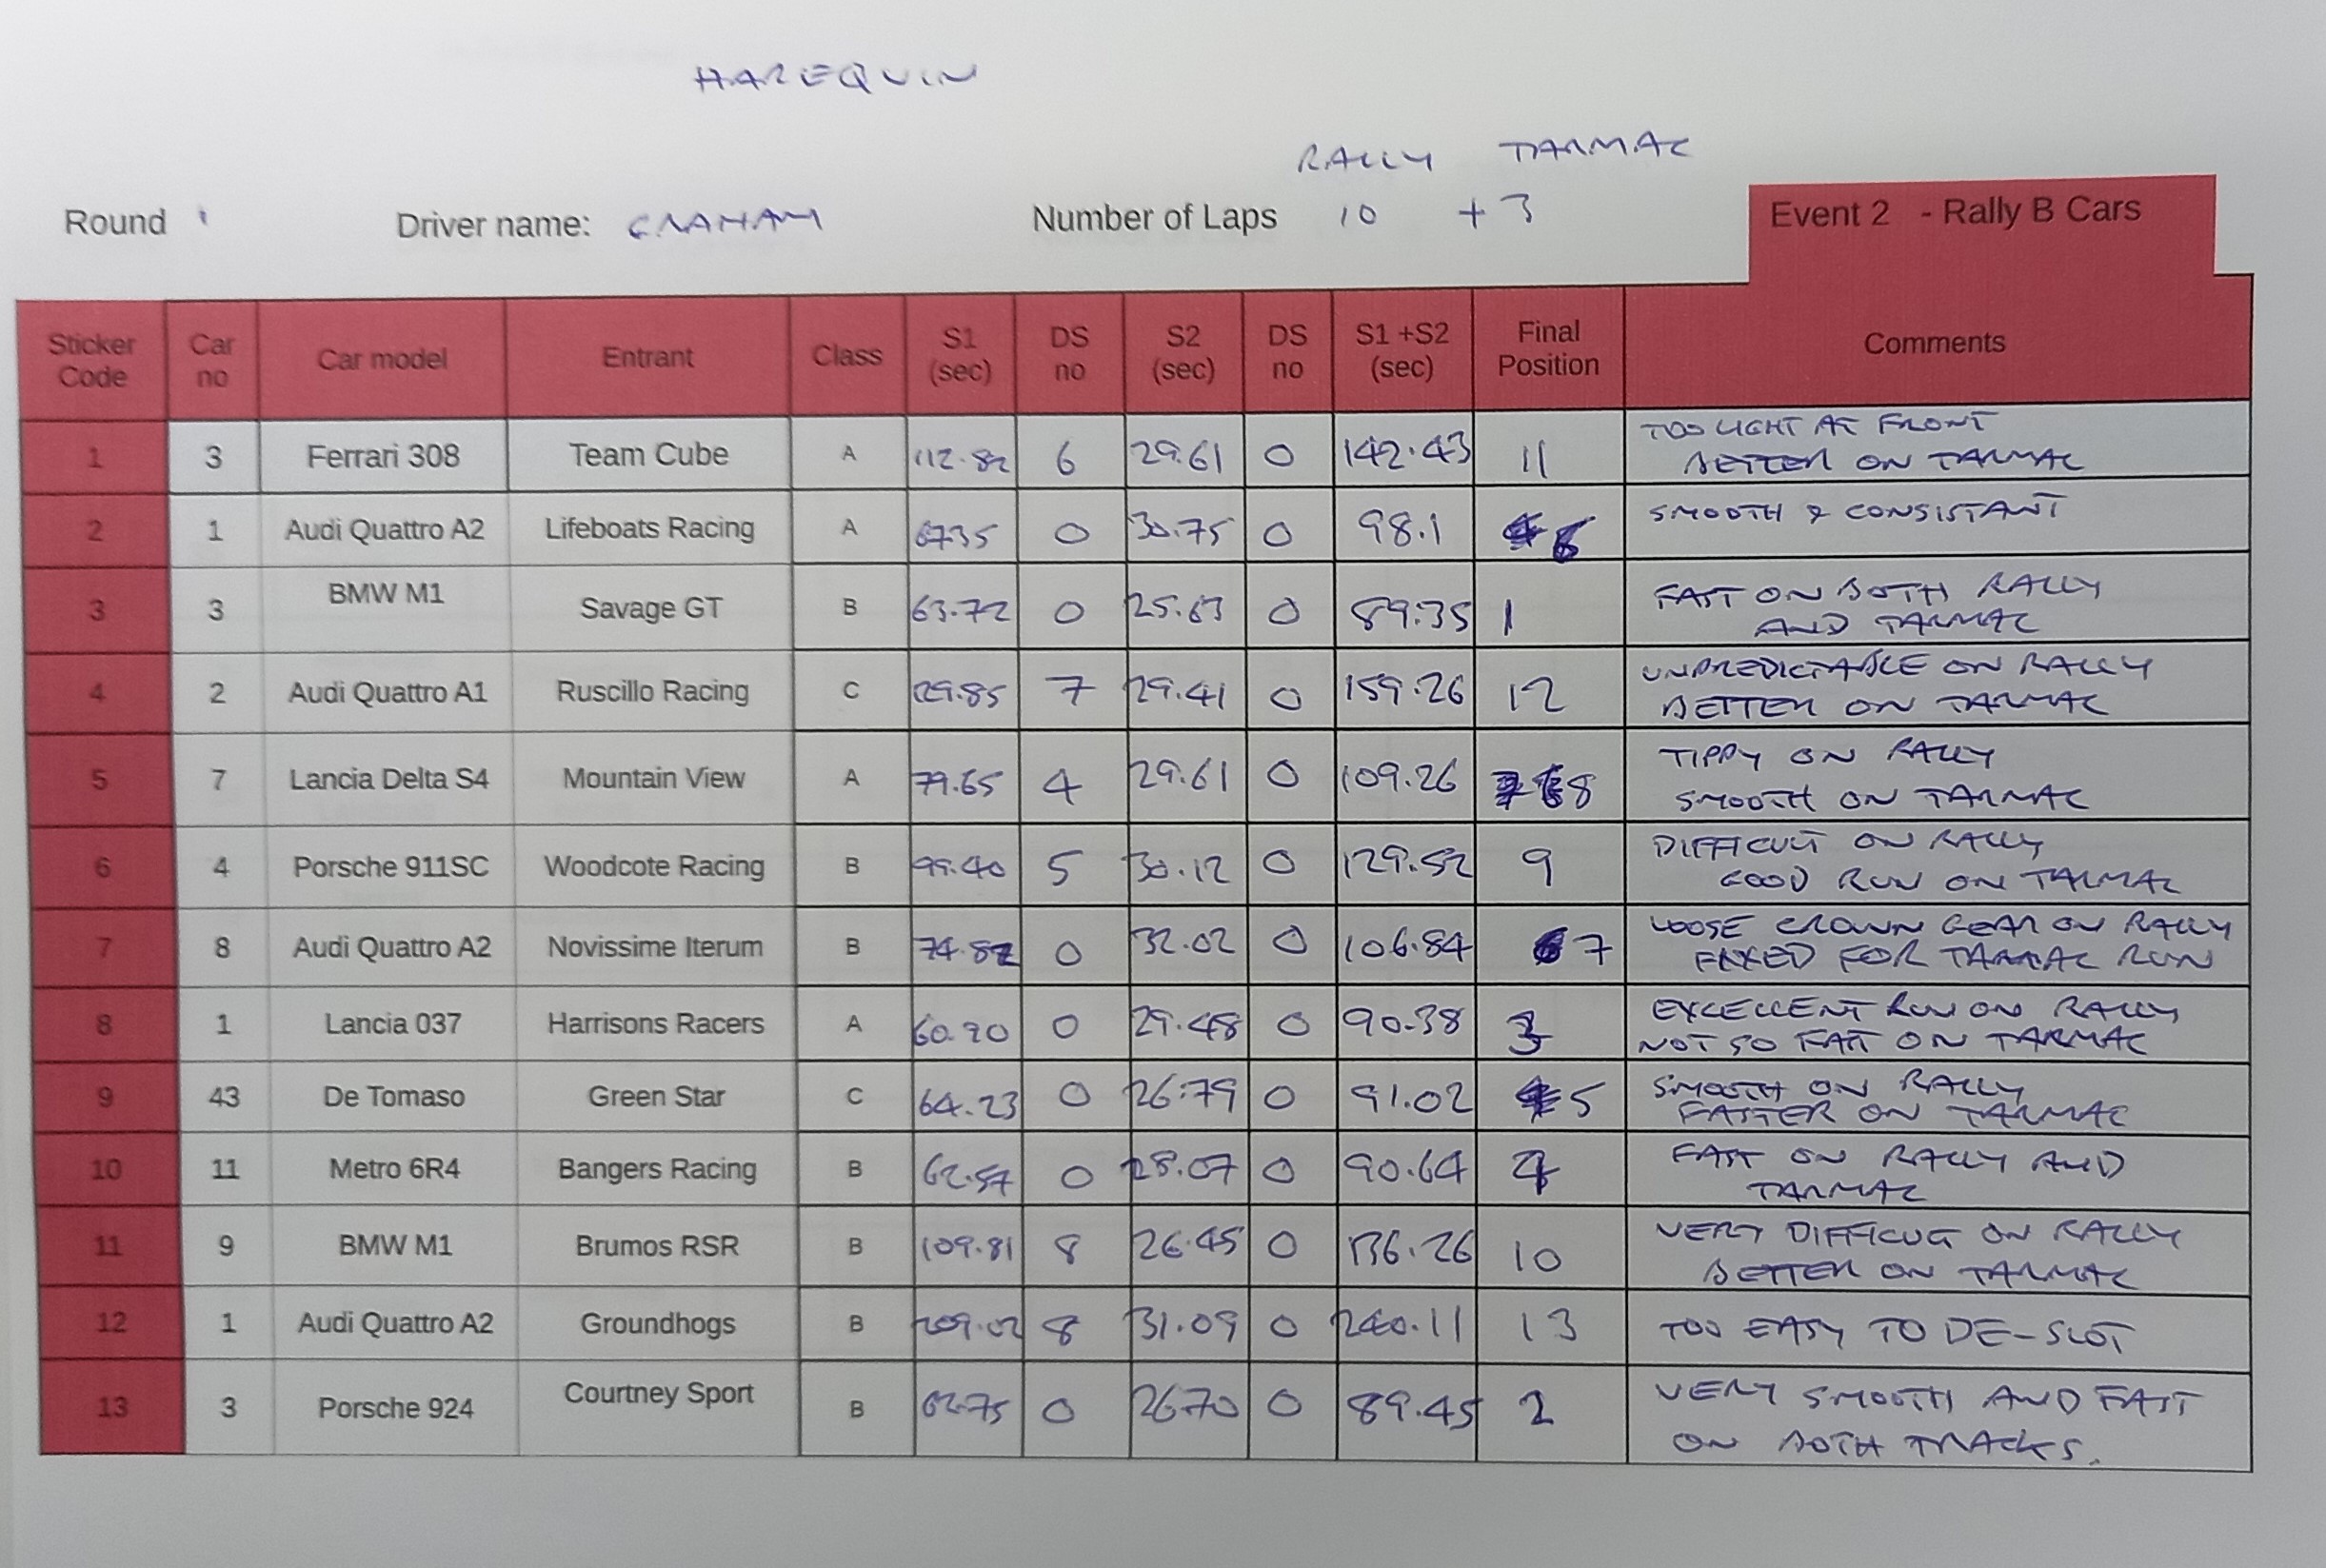 HAREQUIN
RALLY TARMAC
Round 1 Driver name: GRAHAM Number of Laps 10 + 3 Event 2 - Rally B Cars
Sticker Code Car no Car model Entrant Class S1 (sec) DS no S2 (sec) DS no S1 +S2 (sec) Final Position Comments
1 3 Ferrari 308 Team Cube A 112.82 6 29.61 0 142.43 11 TOO LIGHT AT FRONT
BETTER ON TARMAC
2 1 Audi Quattro A2 Lifeboats Racing A 67.35 0 30.75 0 98.1 6 SMOOTH & CONSISTANT
3 3 BMW M1 Savage GT B 63.72 0 25.63 0 89.35 1 FAST ON BOTH RALLY
AND TARMAC
4 2 Audi Quattro A1 Ruscillo Racing C 129.85 7 29.41 0 159.26 12 UNPREDICTABLE ON RALLY
BETTER ON TARMAC
5 7 Lancia Delta S4 Mountain View A 79.65 4 29.61 0 109.26 8 TIPPY ON RALLY
SMOOTH ON TARMAC
6 4 Porsche 911SC Woodcote Racing B 99.40 5 30.12 0 129.52 9 DIFFICULT ON RALLY
GOOD RUN ON TARMAC
7 8 Audi Quattro A2 Novissime Iterum B 74.82 0 32.02 0 106.84 7 LOOSE CROWN GEAR ON RALLY
FIXED FOR TARMAC RUN
8 1 Lancia 037 Harrisons Racers A 60.90 0 29.48 0 90.38 3 EXCELLENT RUN ON RALLY
NOT SO FAST ON TARMAC
9 43 De Tomaso Green Star C 64.23 0 26.79 0 91.02 5 SMOOTH ON RALLY
FASTER ON TARMAC
10 11 Metro 6R4 Bangers Racing B 62.57 0 28.07 0 90.64 4 FAST ON RALLY AND
TARMAC
11 9 BMW M1 Brumos RSR B 109.81 8 26.45 0 136.26 10 VERY DIFFICULT ON RALLY
BETTER ON TARMAC
12 1 Audi Quattro A2 Groundhogs B 209.02 8 31.09 0 240.11 13 TOO EASY TO DE-SLOT
13 3 Porsche 924 Courtney Sport B 62.75 0 26.70 0 89.45 2 VERY SMOOTH AND FAST
ON BOTH TRACKS.